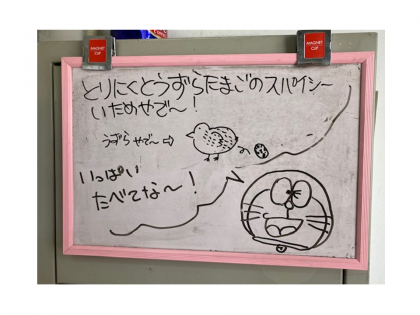 とりにくとうずらたまごのスパイシー
いためやで〜！
うずらやで〜⇨
いっぱい
たべてな〜！
MAGNET
CLIP
MAGNET
CLIP